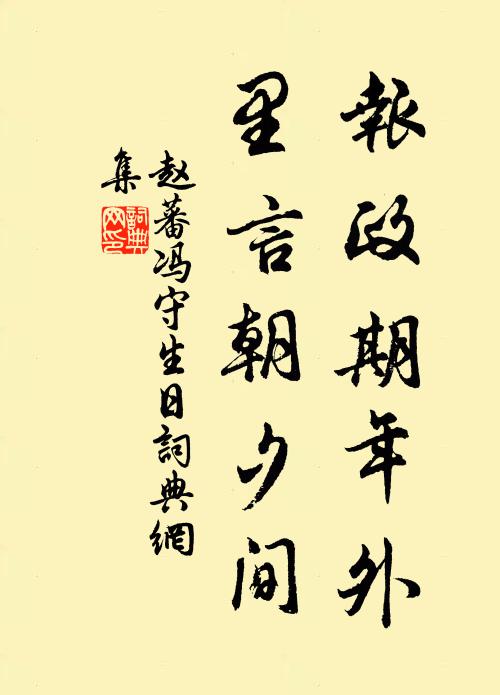 報政期年外
里言朝夕间
赵蕃冯守生日詞典網
集
詞典網印